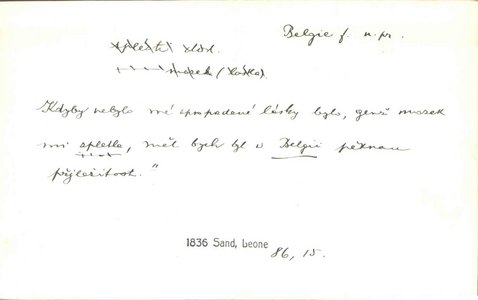 Belgie f. n. pr.
splésti slov.
mozek (láska)
Kdyby nebylo mé spropadené lásky bylo, jenž mozek
mi spletla, měl bych byl v Belgii pěknou
příležitost."
1836 Sand, Leone
86, 15.